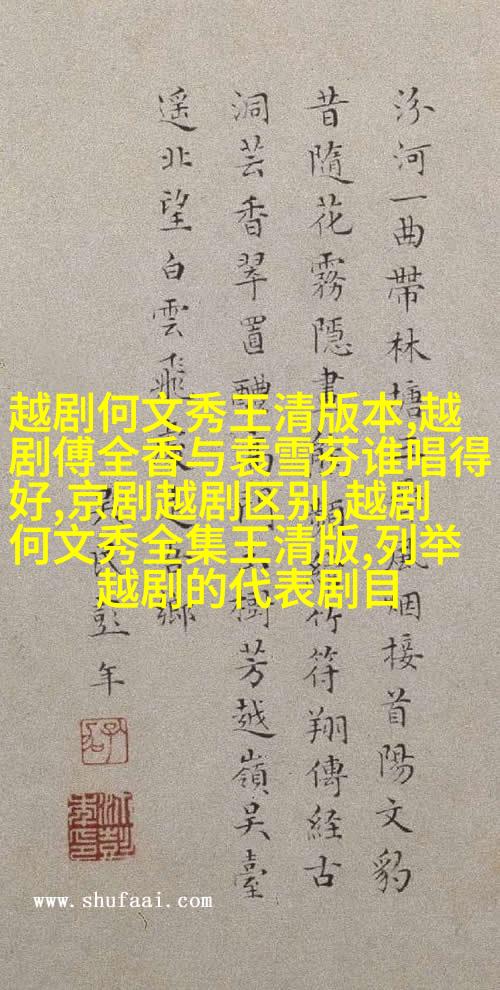 越剧何文秀王清版本,越
剧傅全香与袁雪芬谁唱得
好,京剧越剧区别,越剧
何文秀全集王清版,列举
越剧的代表剧目
汾河一曲帶林塘風烟接首陽文豹
昔隨花霧隱書竹符翔傳經古
洞芸香翠置醴樹芳越嶺吳臺
遥北望白雲飛鄉
彭年
www.shufaai.com